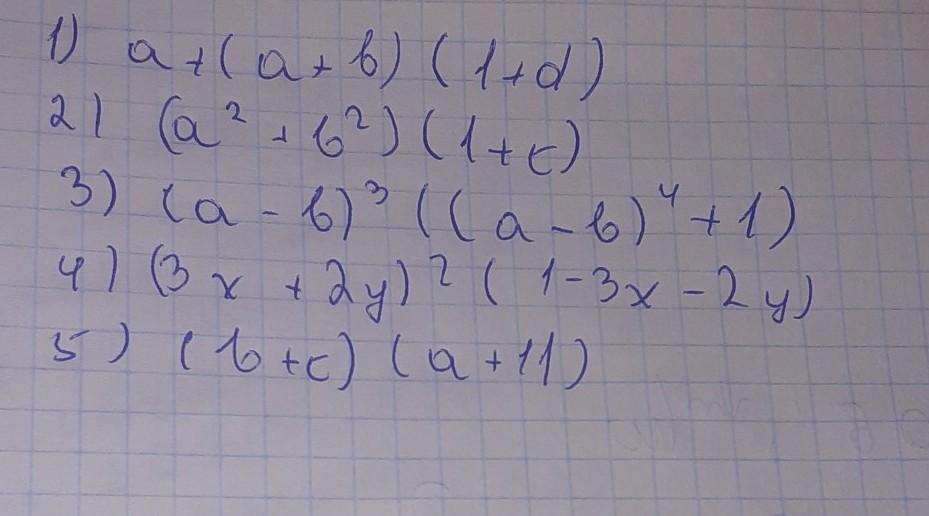 1) a+(a+b)(1+d)
2) (a²+b²)(1+c)
3) (a-b)³((a-b)⁴+1)
4) (3x+2y)²(1-3x-2y)
5) (b+c)(a+11)